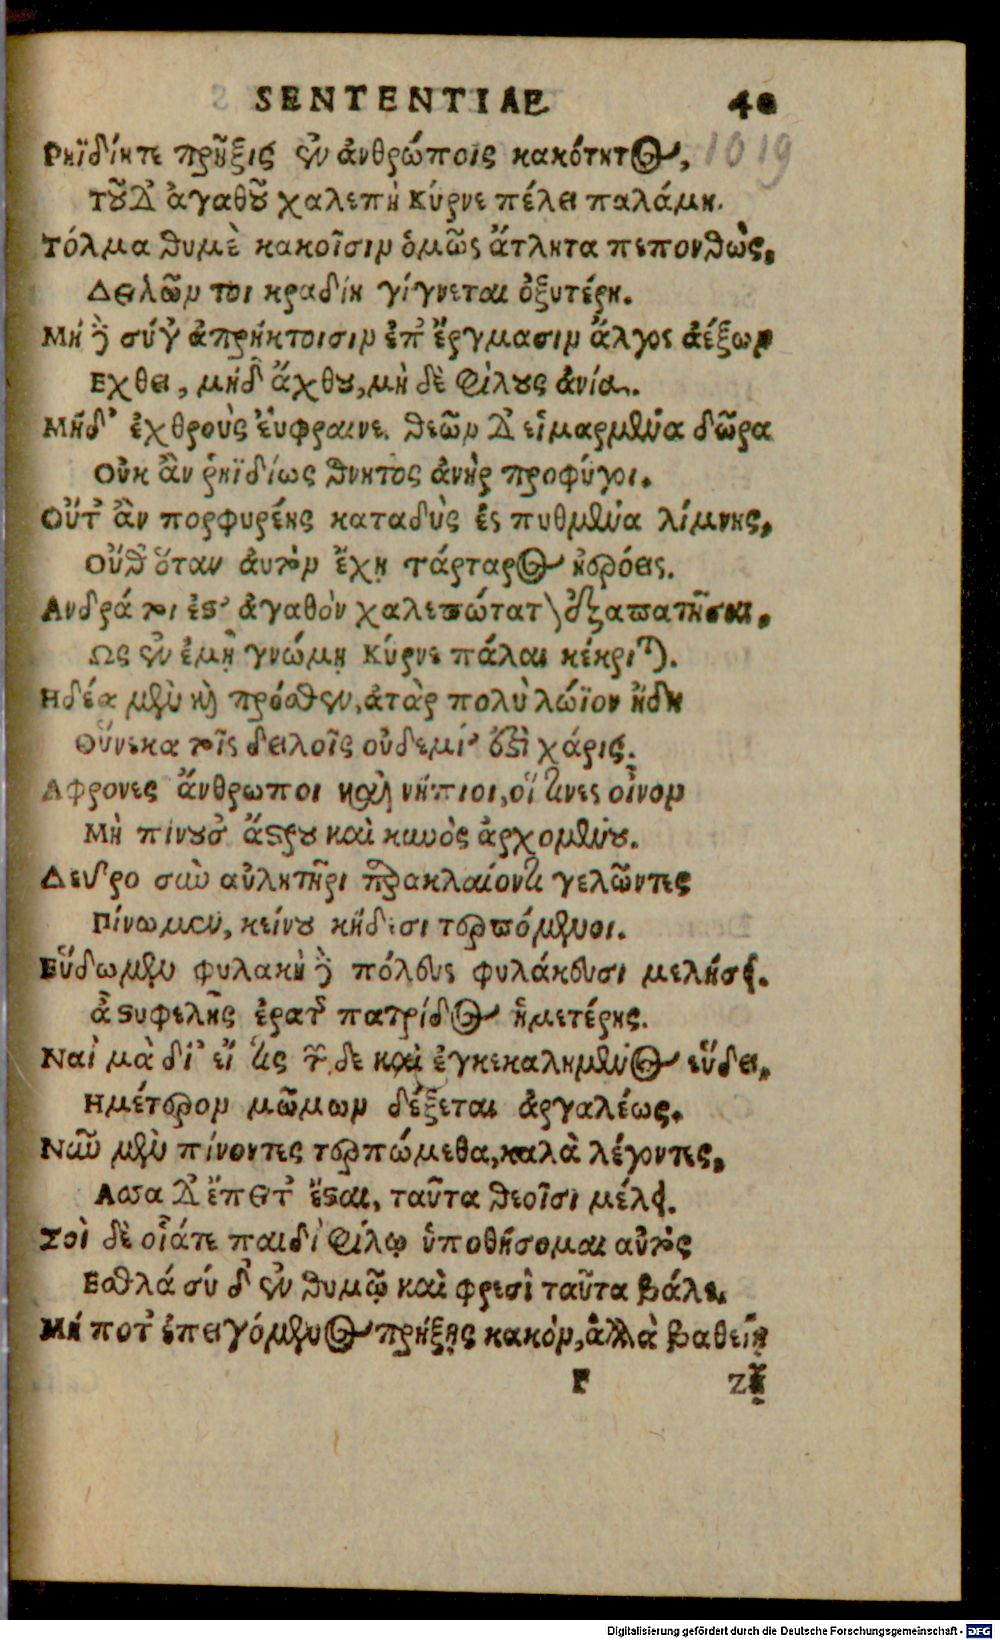 SENTENTIAE 40
1019
Ρηϊδίητε πρῆξις ἐν ἀνθρώποις κακότητος,
τοῦ δ' ἀγαθοῦ χαλεπὴ Κύρνε πέλει παλάμη.
Τόλμα θυμὲ κακοῖσιν ὁμῶς ἄτλητα πεπονθὼς,
Δειλῶν τοι κραδίη γίγνεται ὀξυτέρη.
Μή δὲ σύγ' ἀπρήκτοισιν ἐπ' ἔργμασιν ἄλγος ἀέξων
Εχθει, μήδ' ἄχθου, μὴ δὲ φίλους ἀνία.
Μήδ' ἐχθροὺς ἐύφραινε. θεῶν δ' εἱμαρμένα δῶρα
Οὐκ ἂν ῥηϊδίως θνητὸς ἀνὴρ προφύγοι.
Οὔτ' ἂν πορφυρέης καταδὺς ἐς πυθμένα λίμνης,
Οὔθ' ὅταν ἀυτὸν ἔχῃ τάρταρος ἠερόεις.
Ανδρά τοι ἐστ' ἀγαθὸν χαλεπώτατον ἐξαπατῆσαι,
Ως ἐν ἐμῇ γνώμῃ Κύρνε πάλαι κέκριται.
Ηδέα μὲν καὶ πρόσθεν, ἀτὰρ πολὺ λώϊον ἤδη
Οὕνεκα τοῖς δειλοῖς οὐδεμί' ἐστὶ χάρις.
Αφρονες ἄνθρωποι καὶ νήπιοι, οἵ τινες οἶνον
Μὴ πίνουσ' ἄστρου καὶ κυνὸς ἀρχομένου.
Δεῦρο σὺν αὐλητῆρι παρακλαίοντι γελῶντες
Πίνωμεν, κείνου κήδεσι τερπόμενοι.
Εὕδωμεν φυλακὴ δὲ πόλευς φυλάκευσι μελήσει.
ἀστυφελῆς ἐρατῆς πατρίδος ἡμετέρης.
Ναὶ μὰ δί' εἴ τις τῶν δε καὶ ἐγκεκαλημμένος εὕδει,
Ημέτερον μῶμον δέξεται ἀργαλέως.
Νῦν μὲν πίνοντες τερπώμεθα, καλὰ λέγοντες,
Ασσα δ' ἔπειτ' ἔσται, ταῦτα θεοῖσι μέλει.
Σοὶ δὲ οἷάτε παιδὶ φίλῳ ὑποθήσομαι αὐτὸς
Εσθλά σύ δ' ἐν θυμῷ καὶ φρεσὶ ταῦτα βάλε.
Μή ποτ' ἐπειγόμενος πρήξῃς κακὸν, ἀλλὰ βαθείῃ
F Zῇ
Digitalisierung gefördert durch die Deutsche Forschungsgemeinschaft - DFG